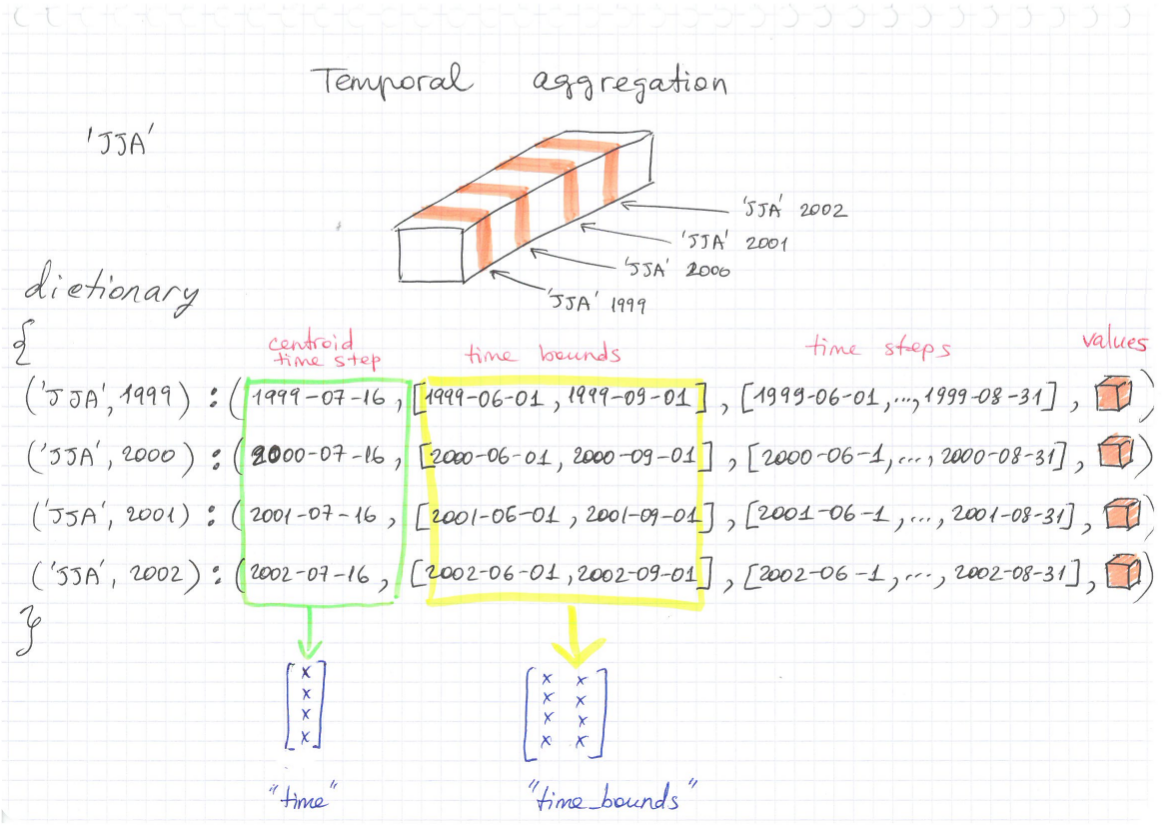 Temporal aggregation
'JJA'
'JJA' 2002
'JJA' 2001
'JJA' 2000
'JJA' 1999
dictionary
{
centroid
time step
time bounds
time steps
values
('JJA', 1999) : (1999-07-16, [1999-06-01, 1999-09-01], [1999-06-01,..., 1999-08-31], )
('JJA', 2000) : (2000-07-16, [2000-06-01, 2000-09-01], [2000-06-1,..., 2000-08-31], )
('JJA', 2001) : (2001-07-16, [2001-06-01, 2001-09-01], [2001-06-1,..., 2001-08-31], )
('JJA', 2002) : (2002-07-16, [2002-06-01, 2002-09-01], [2002-06-1,..., 2002-08-31], )
}
x x x
x x x
x x x
x x x
"time" "time_bounds"